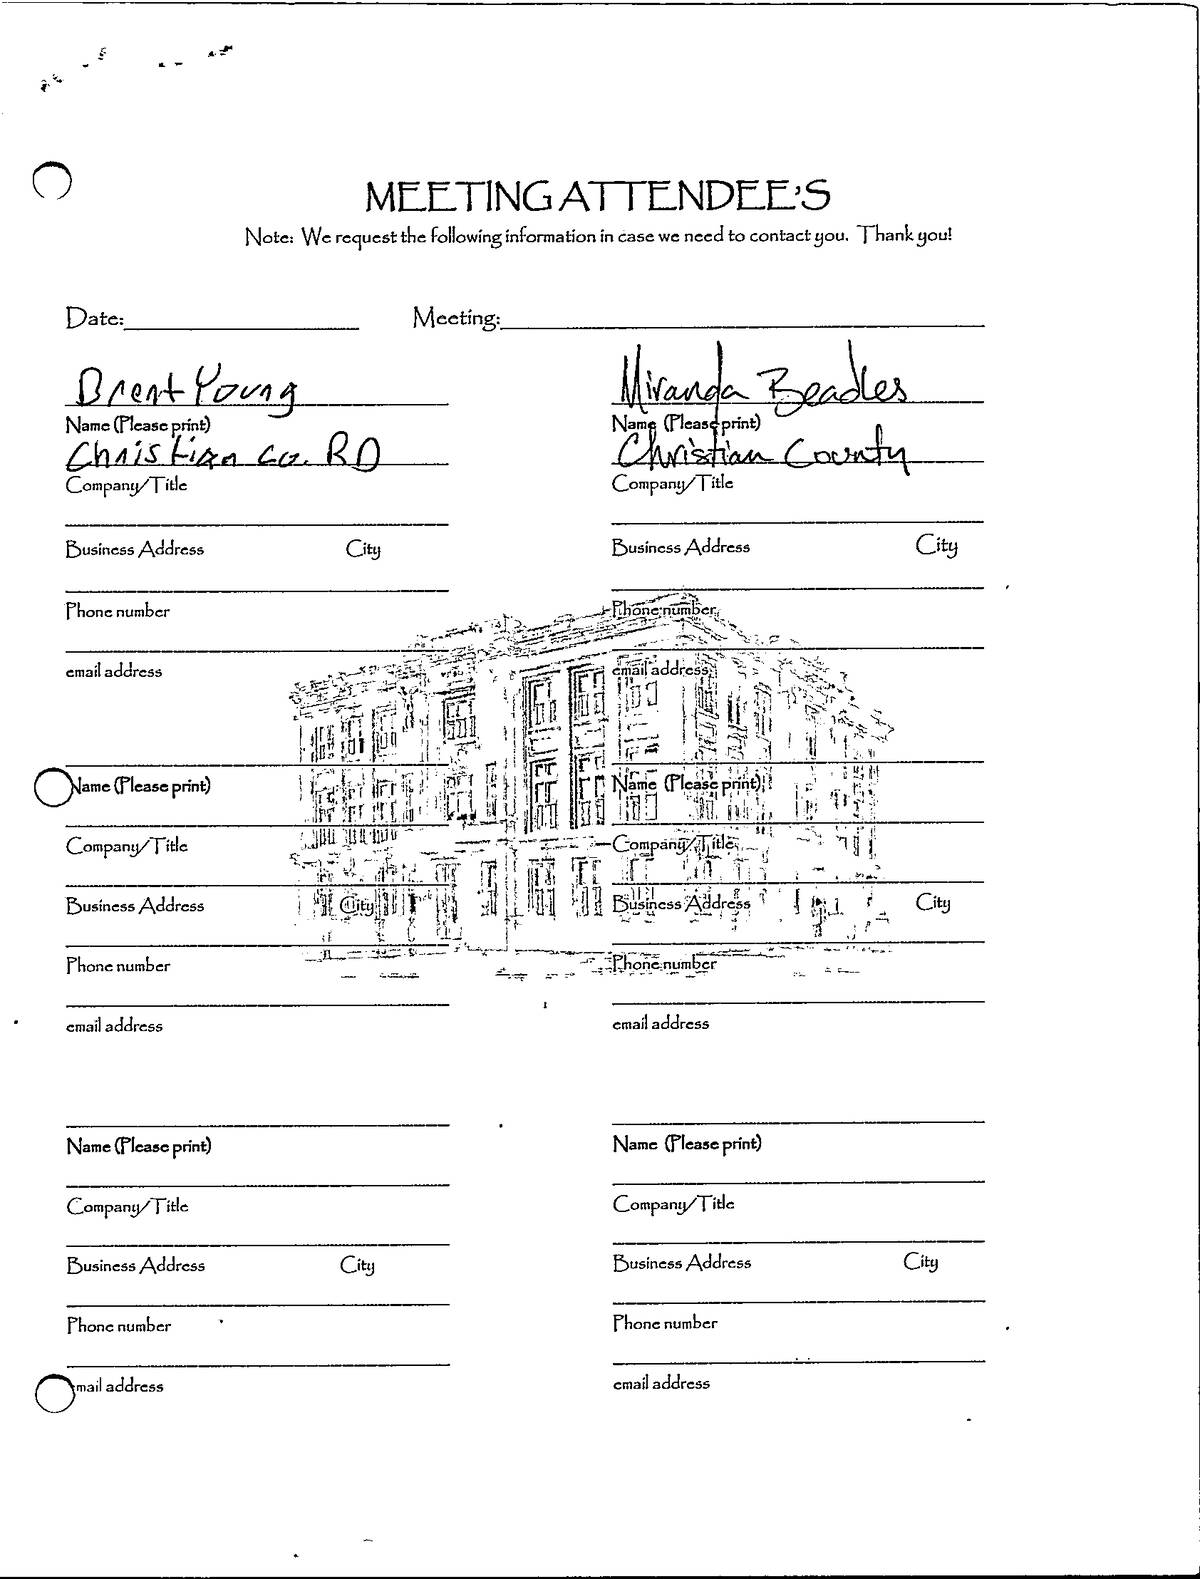 MEETING ATTENDEE'S
Note: We request the following information in case we need to contact you. Thank you!
Date: Meeting:
Brent Young
Name (Please print)
Christian co. RD
Company/Title
Business Address City
Phone number
email address
Miranda Beadles
Name (Please print)
Christian County
Company/Title
Business Address City
Phone number
email address
Name (Please print)
Company/Title
Business Address City
Phone number
email address
Name (Please print)
Company/Title
Business Address City
Phone number
email address
Name (Please print)
Company/Title
Business Address City
Phone number
email address
Name (Please print)
Company/Title
Business Address City
Phone number
email address